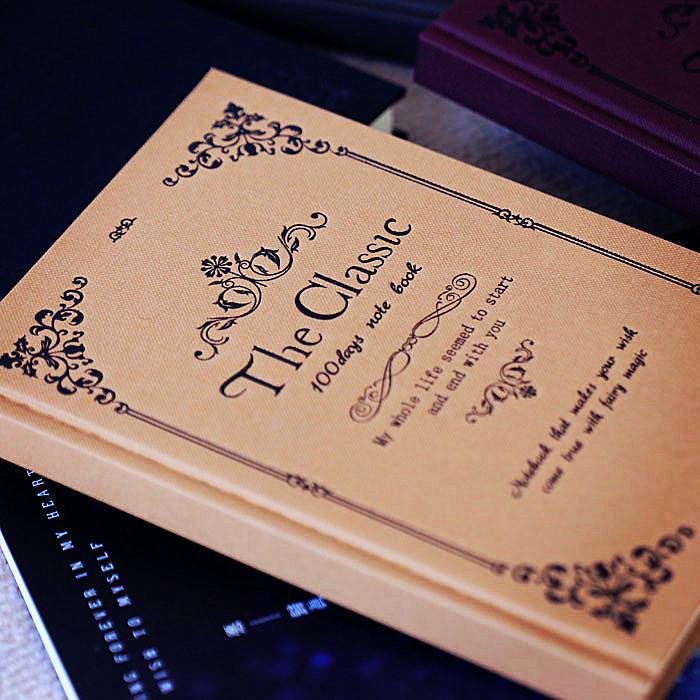 The Classic
100days note book
My whole life seemed to start
and end with you
Notebook that makes your wish
come true with fairy magic
FOREVER IN MY HEART
WISH TO MYSELF